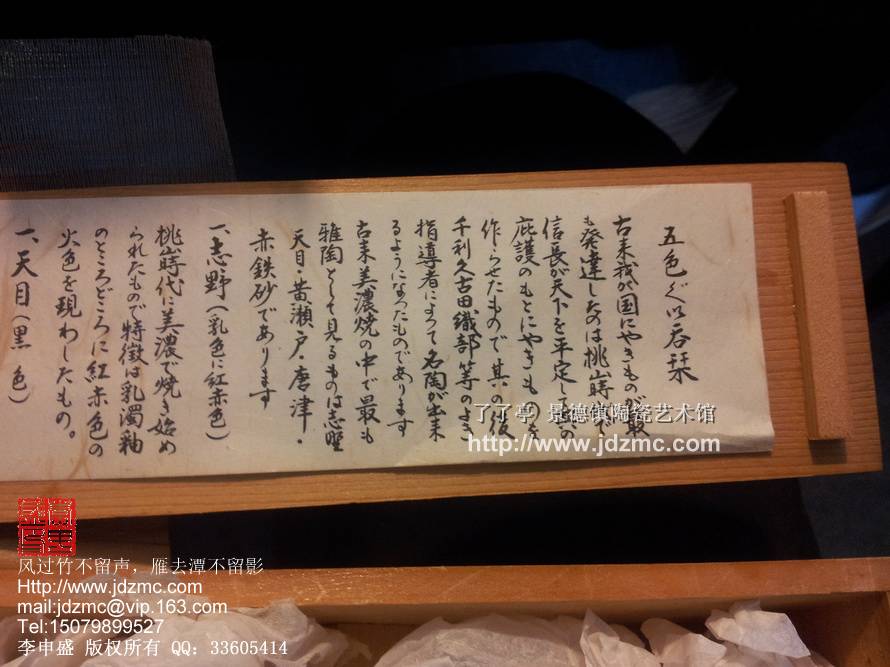 五色ぐい呑栞
古来我が国にやきものが最
も発達したのは桃山時代で
信長が天下を平定し其の
庇護のもとにやきものを
作らせたもので其の後
千利久古田織部等のよき
指導者によつて名陶が出来
るようになつたものであります
古来美濃焼の中で最も
雅陶として見るものは志野
天目・黄瀬戸・唐津・
赤鉄砂であります
一、志野(乳色に紅赤色)
桃山時代に美濃で焼き始め
られたもので特徴は乳濁釉
のところどころに紅赤色の
火色を現わしたもの。
一、天目(黒色)
了了亭 景德镇陶瓷艺术馆
http://www.jdzmc.com
风过竹不留声，雁去潭不留影
Http://www.jdzmc.com
mail:jdzmc@vip.163.com
Tel:15079899527
李申盛 版权所有 QQ：33605414